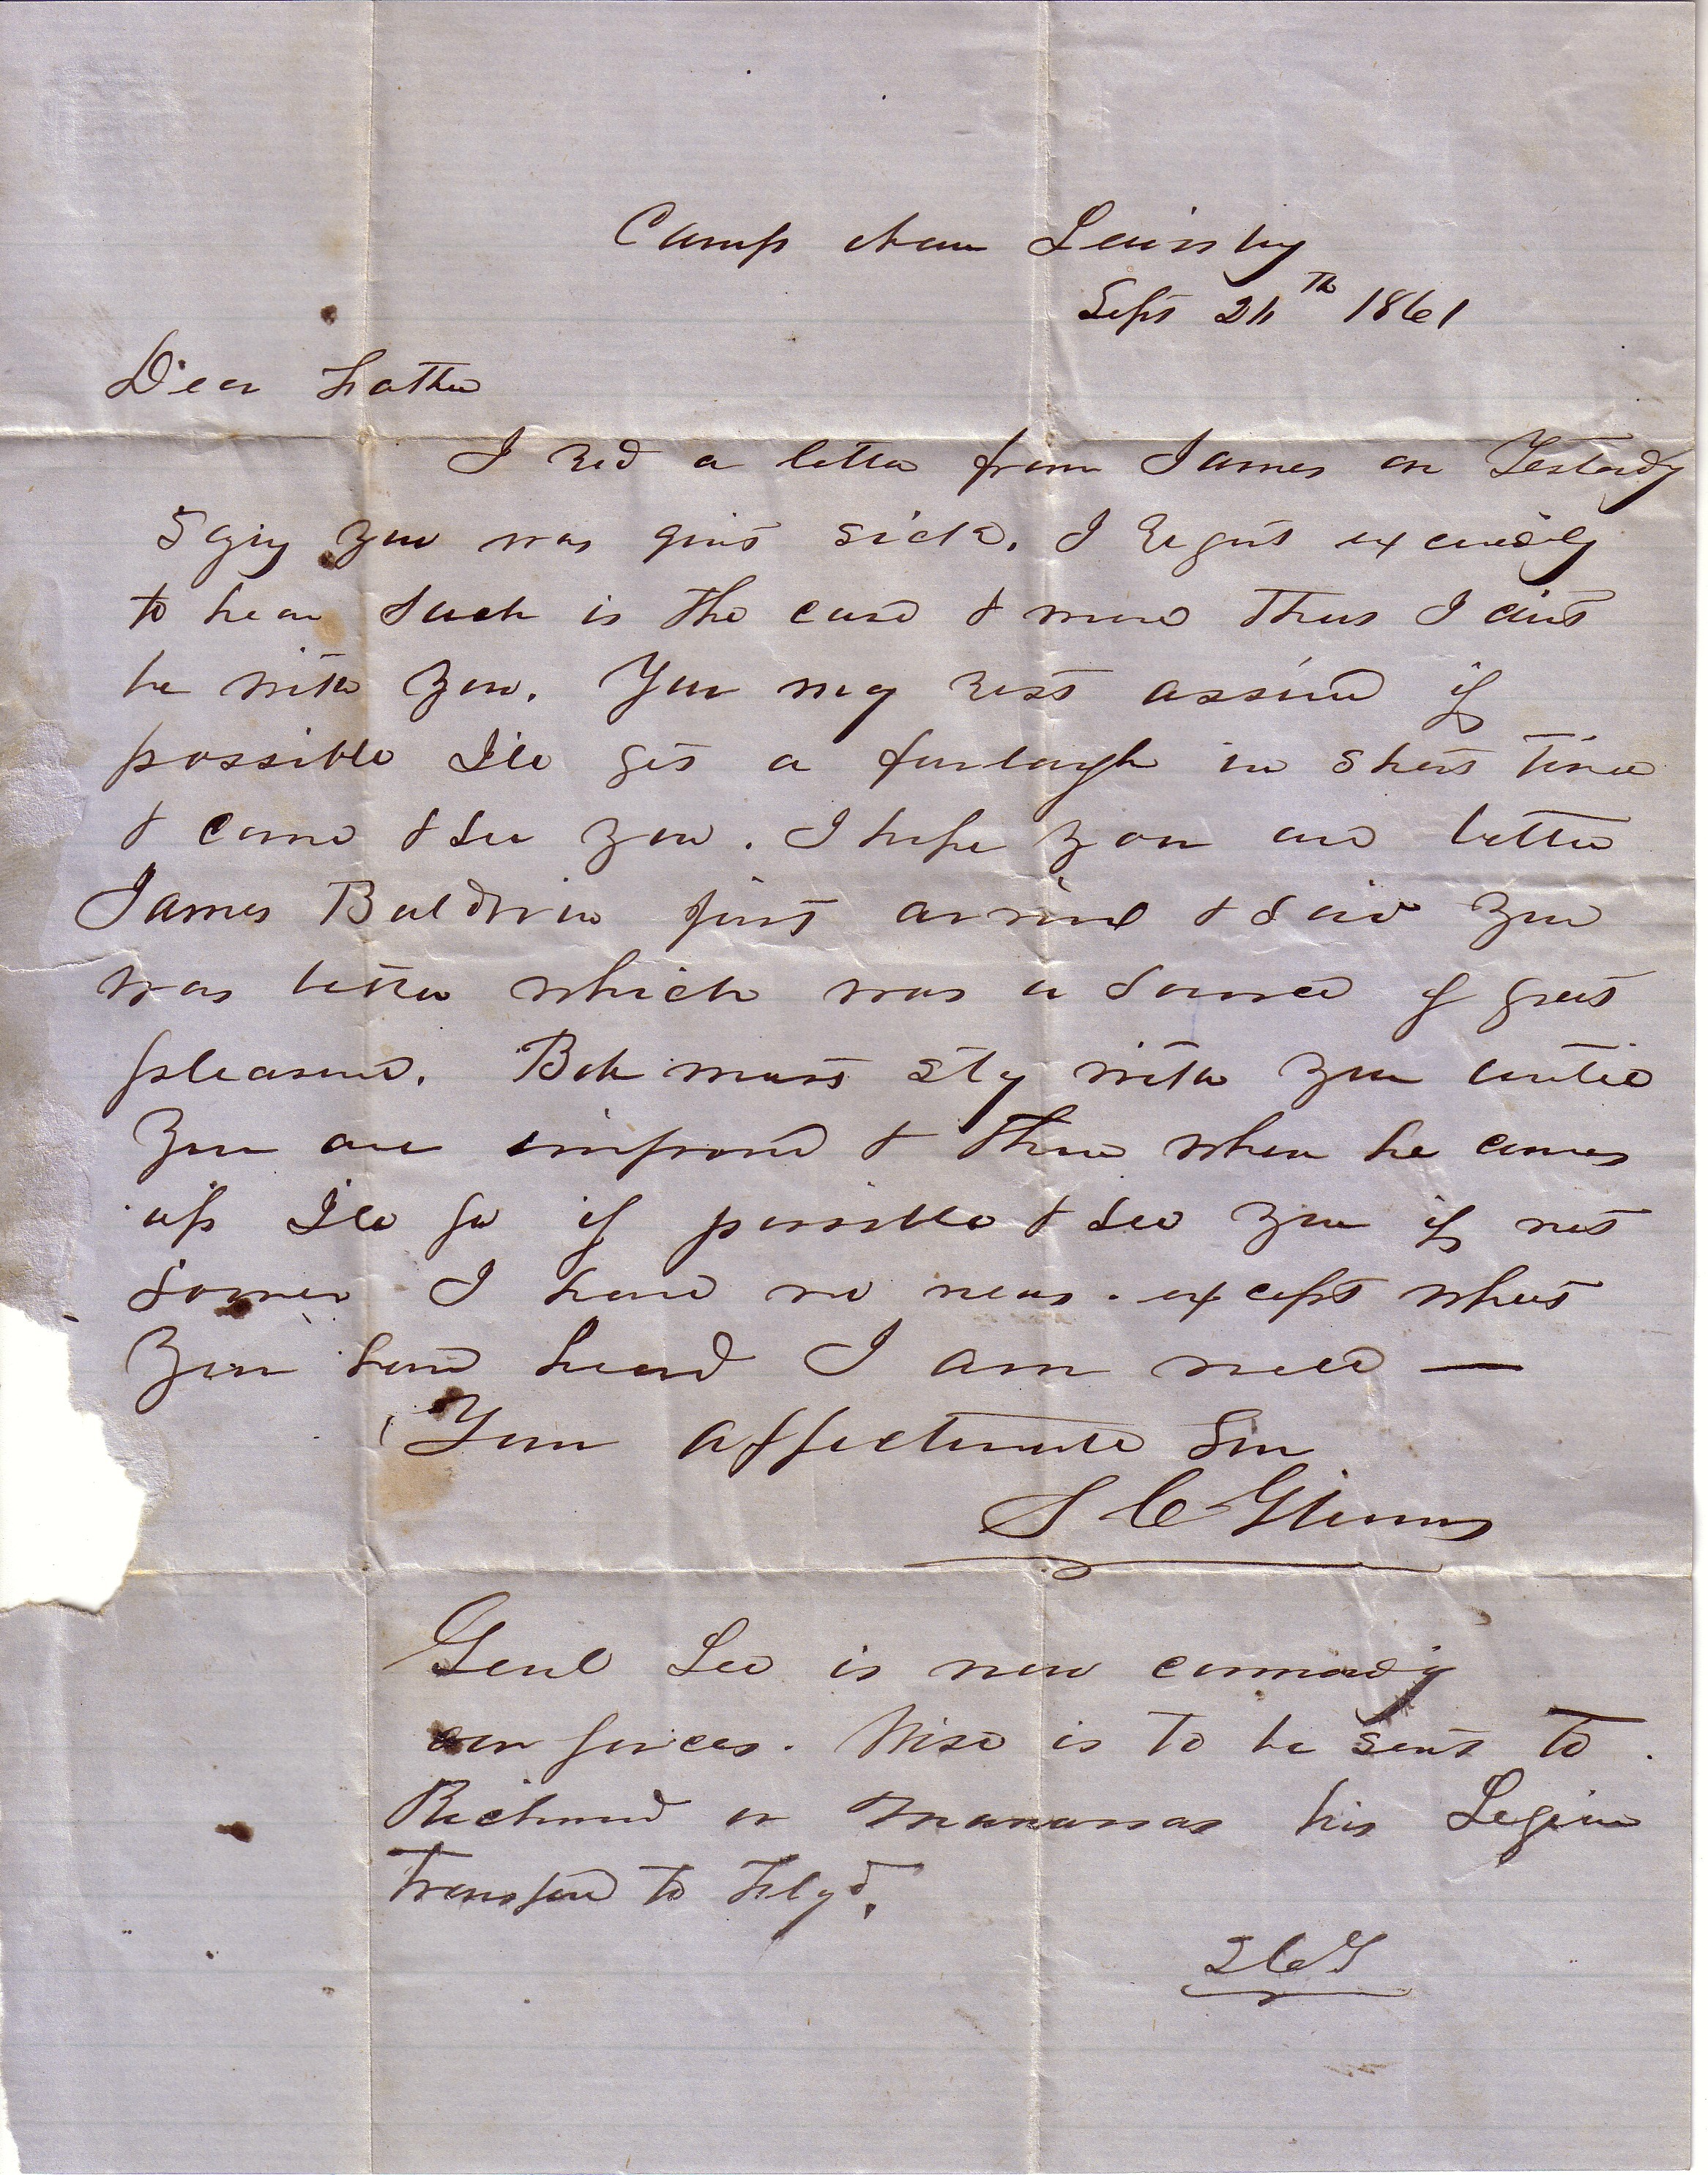 Camp near Lewisburg
Sept 24th 1861
Dear Father
I recd a letter from James on Yesterdy
Sayig you was quit sick. I regret exceedigly
to hear such is the case & more that I cant
be with you. You my rest assured if
possible Ile get a furlough in short time
& come & see you. I hope you are better
James Baldwin just arrived & said you
was better which was a source of great
pleasure. Bob must sty with you until
you are improved & then when he comes
up Ile go if possible & see you if not
sooner I have no news. except what
you have heard I am well —
Your affectionate Son
S C G
Genl Lee is now commandig
our forces. Wise is to be sent to
Richmond or Manassas his Legion
transferd to Floyd.
S C G